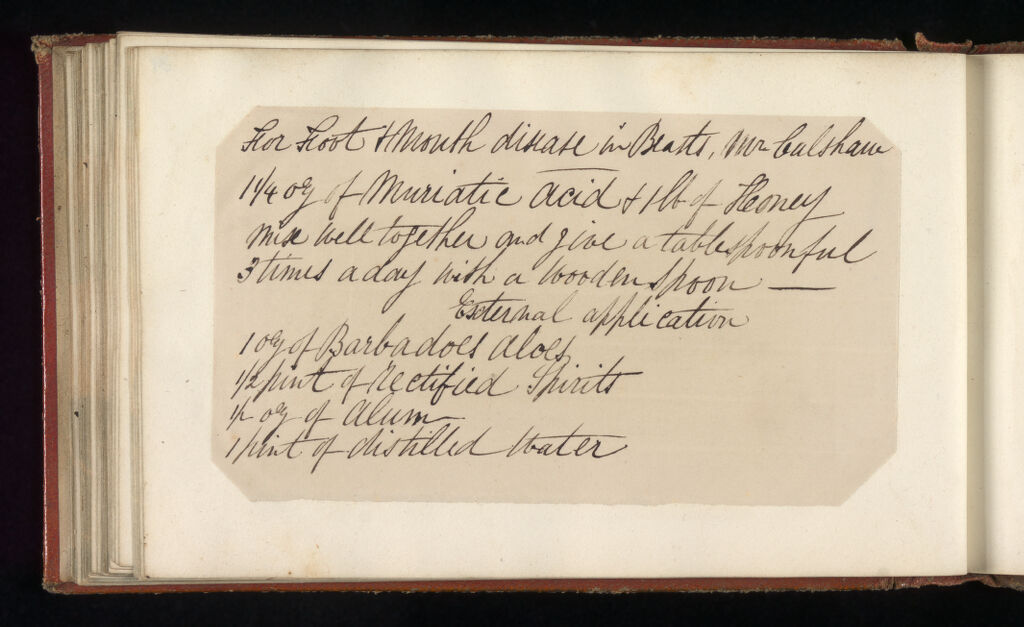 For Foot & Mouth disease in Beasts, Mr Culshaw
1 1/4 oz of Muriatic acid & 1 lb of Honey
Mix well together and give a tablespoonful
3 times a day with a wooden spoon —
External application
1 oz of Barbadoes Aloes
1/2 pint of Rectified Spirits
1/2 oz of Alum
1 pint of distilled Water